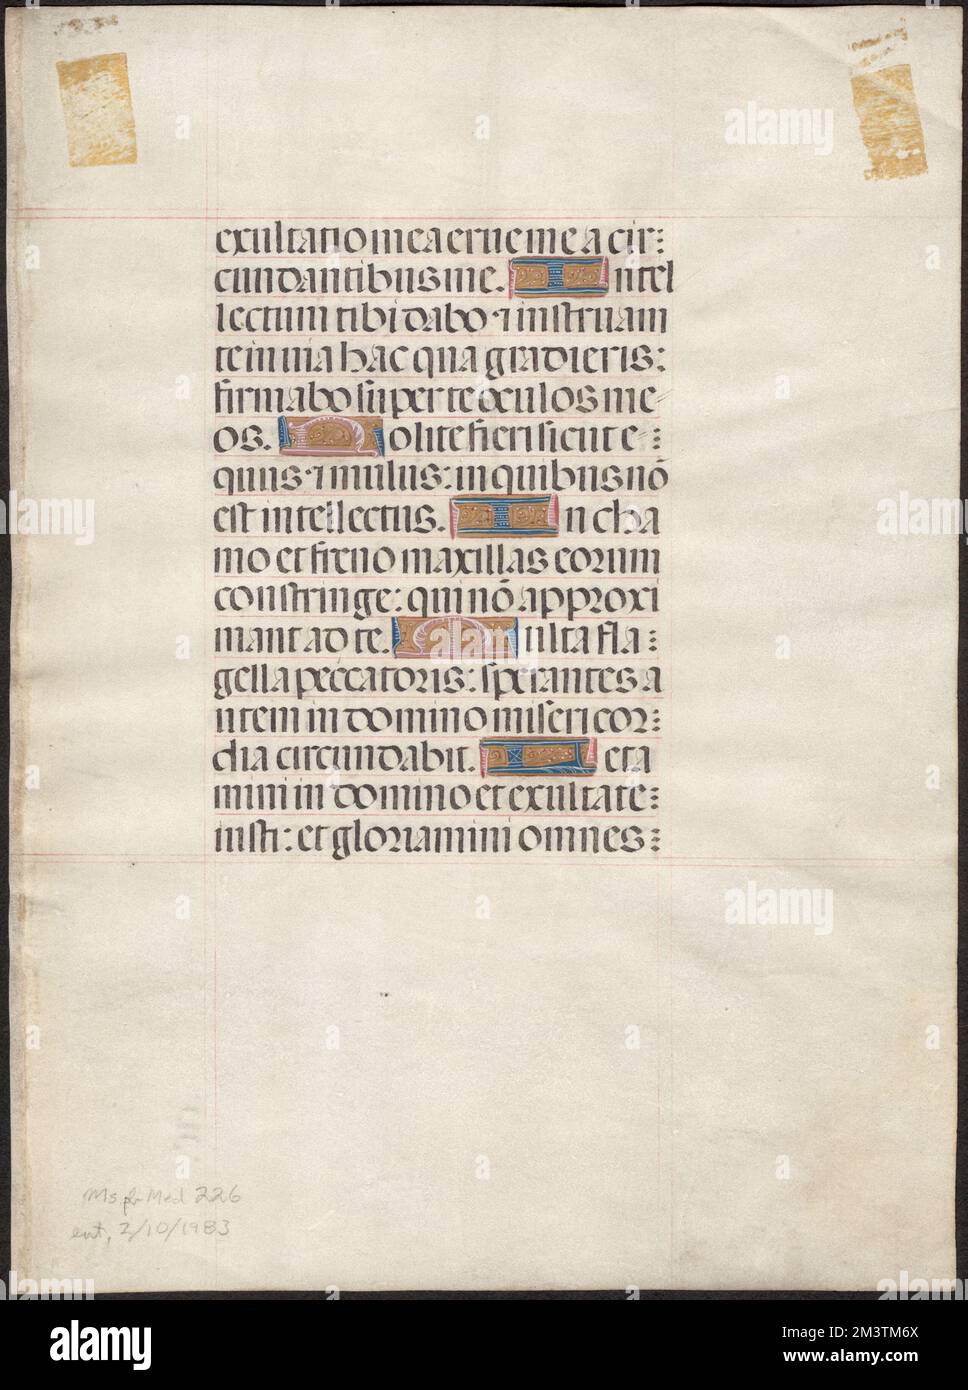 exultatio mea erue me a cir:
cundantibus me. Intel
lectum tibi dabo ⁊ instruam
te in via hac qua gradieris:
firmabo super te oculos me
os. Nolite fieri sicut e
quus ⁊ mulus: in quibus nō
est intellectus. In cha
mo et freno maxillas eorum
constringe: qui nō approxi
mant ad te. Multa fla
gella peccatoris: sperantes a
utem in domino misericor
dia circundabit. Leta
mini in domino et exultate
iusti: et gloriamini omnes
Ms pb Med 226
ent, 2/10/1983
alamy
alamy
Image ID: 2M3TM6X
www.alamy.com